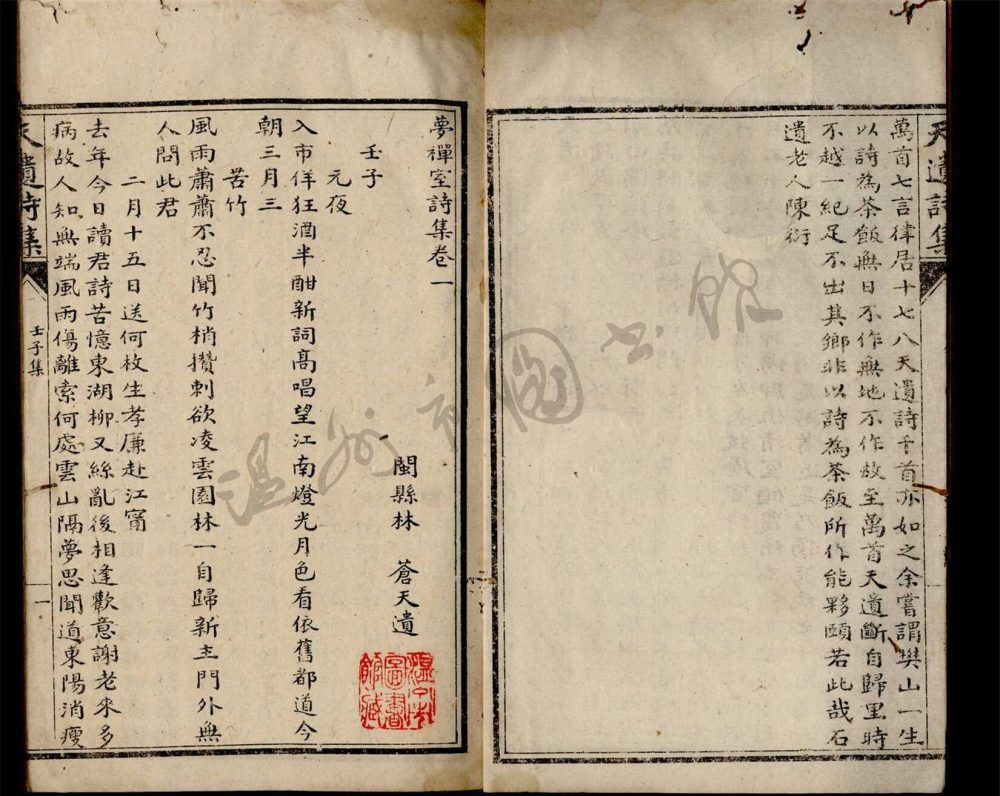 天遺詩集
萬首七言律居十七八天遺詩千首亦如之余嘗謂樊山一生
以詩為茶飯無日不作無地不作故至萬首天遺斷自歸里時
不越一紀足不出其鄉非以詩為茶飯所作能夥頤若此哉石
遺老人陳衍
夢禪室詩集卷一
閩縣林 蒼天遺
壬子
元夜
入市佯狂酒半酣新詞高唱望江南燈光月色看依舊都道今
朝三月三
苦竹
風雨蕭蕭不忍聞竹梢攢刺欲凌雲園林一自歸新主門外無
人問此君
二月十五日送何枚生孝廉赴江甯
去年今日讀君詩苦憶東湖柳又絲亂後相逢歡意謝老來多
病故人知無端風雨傷離索何處雲山隔夢思聞道東陽消瘦
天遺詩集
壬子集
一
溫州市圖書館
溫州市圖書館藏